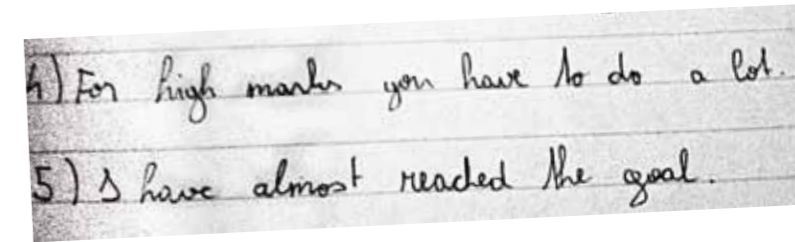 4) For high marks you have to do a lot.
5) I have almost reached the goal.